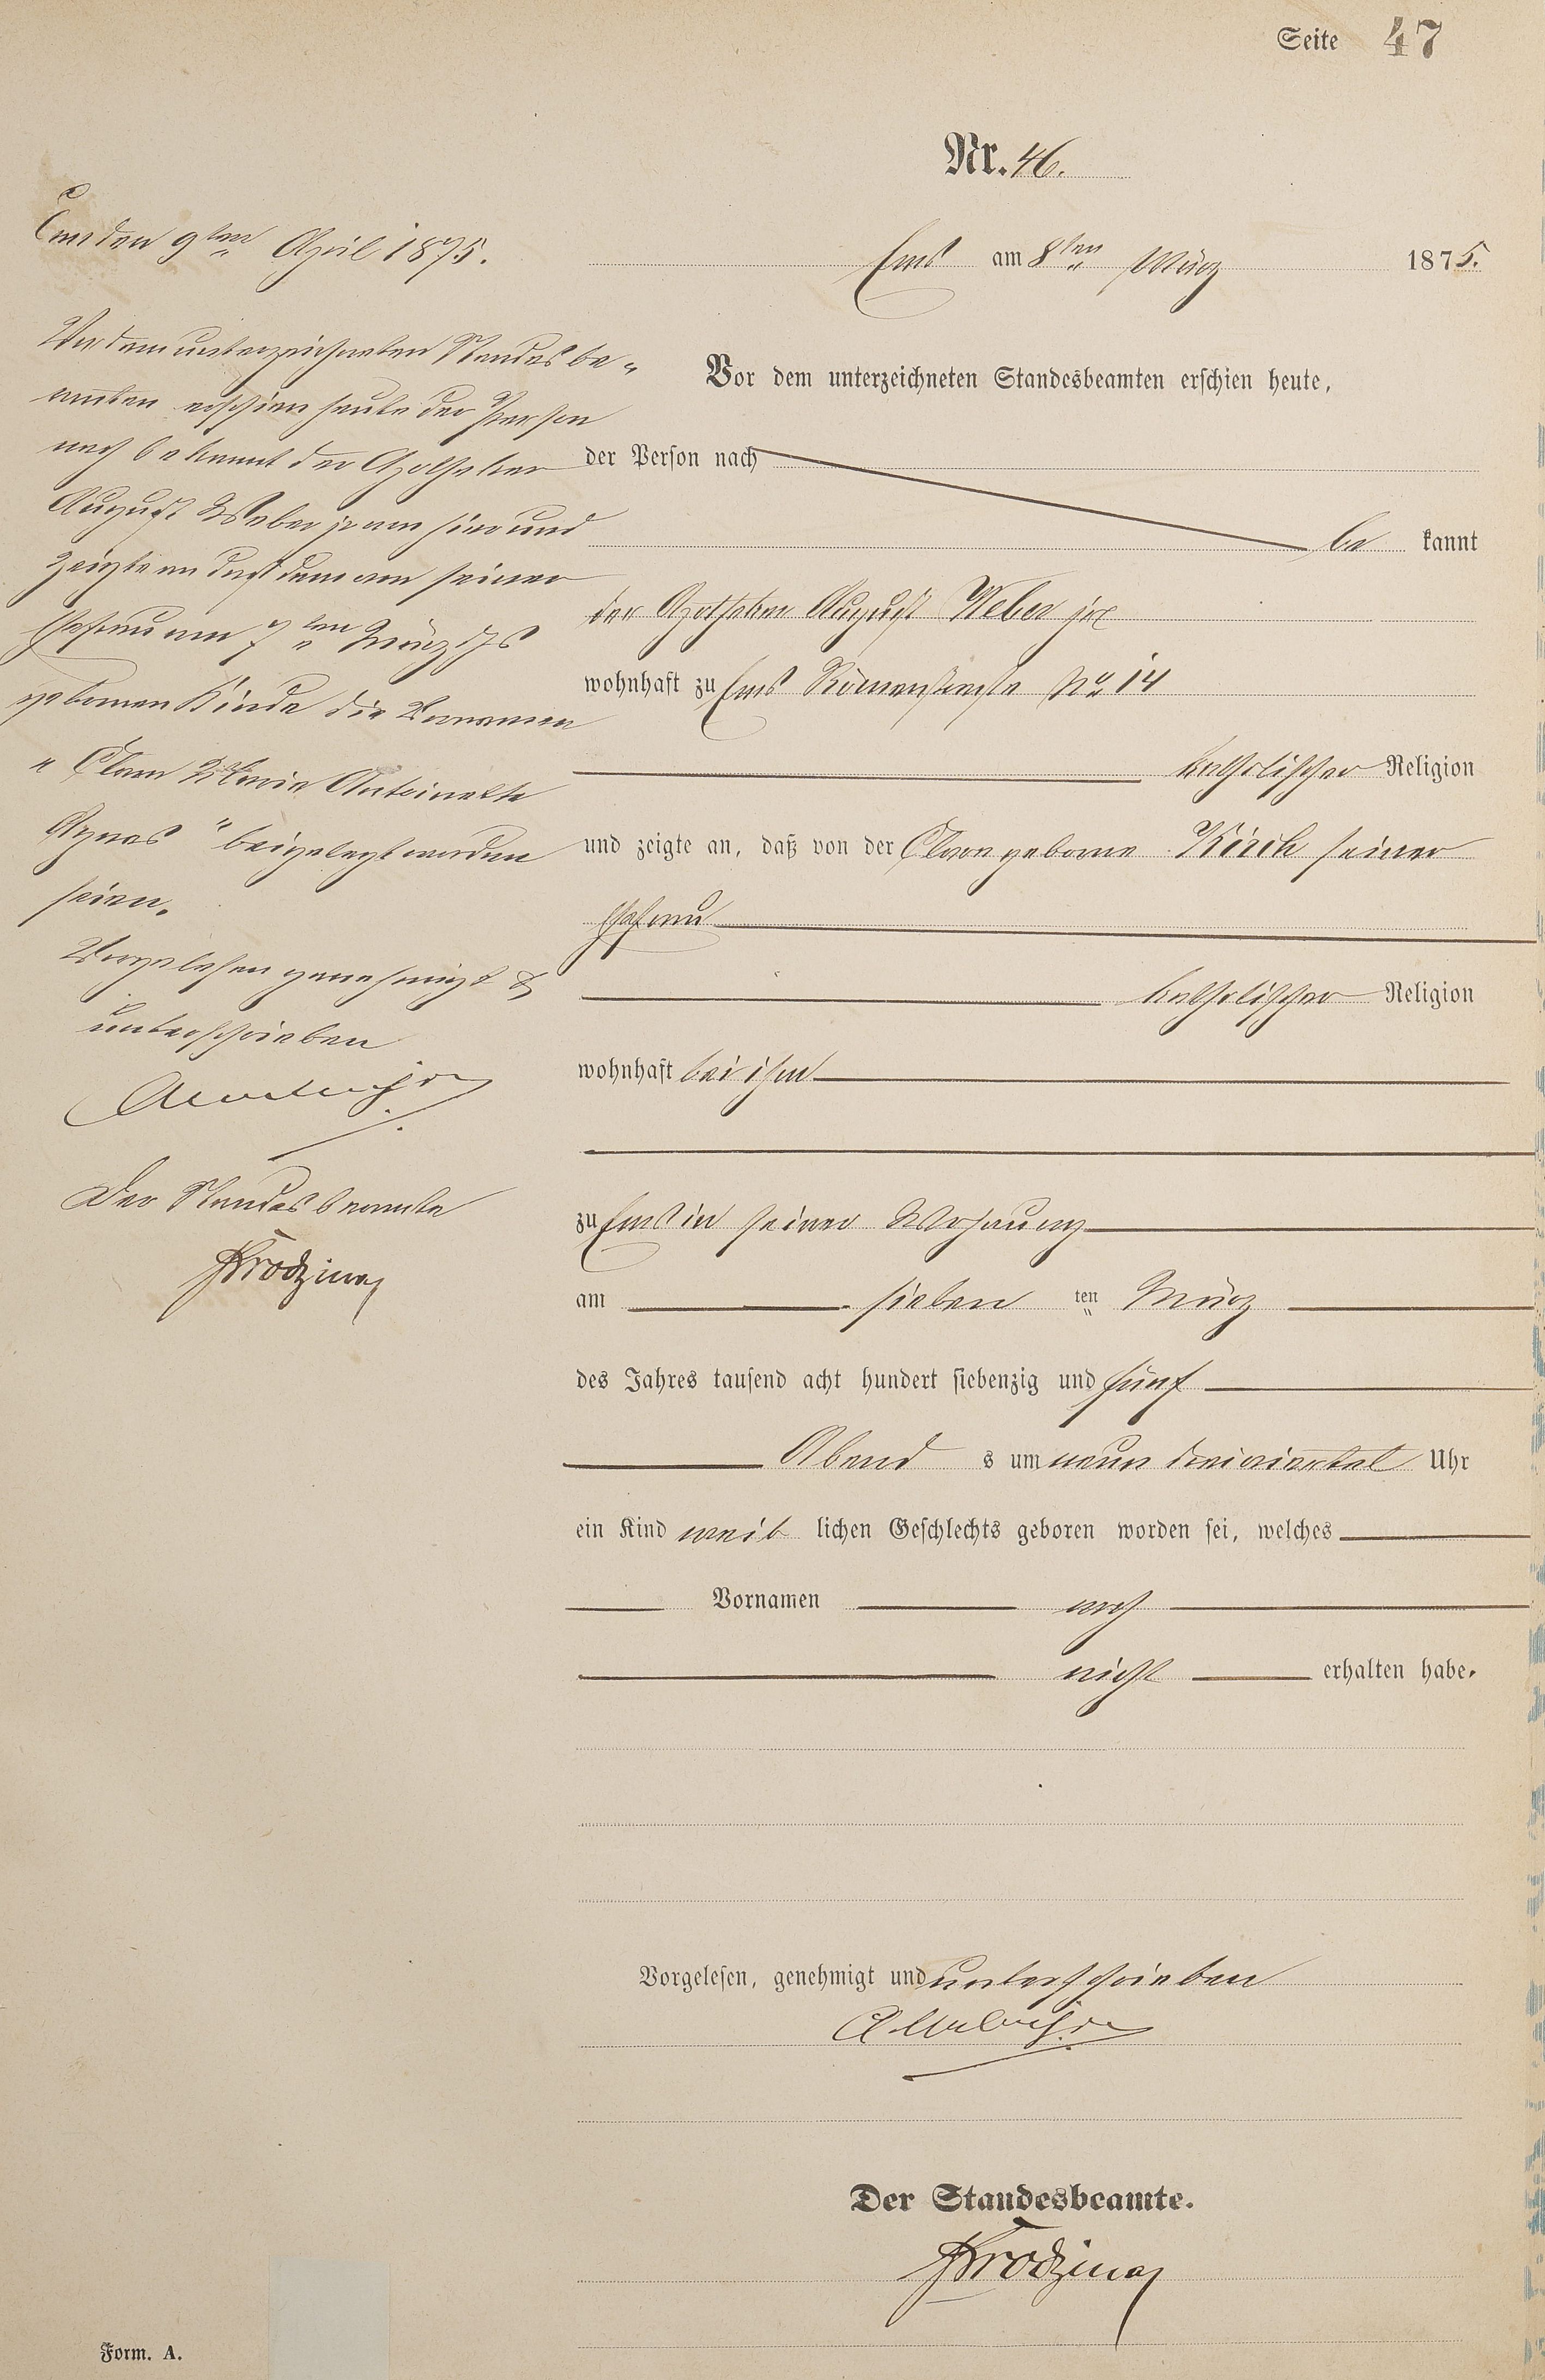 Seite 47
Nr. 46.
Ems am 8ten März 1875.
Vor dem unterzeichneten Standesbeamten erschien heute,
der Person nach
be kannt
der Apotheker August Weber jr
wohnhaft zu Ems Römerstraße No 14
katholischer Religion
und zeigte an, daß von der Clara geborne Kirch seiner
Ehefrau
katholischer Religion
wohnhaft bei ihm
zu Ems in seiner Wohnung
am sieben ten März
des Jahres tausend acht hundert siebenzig und fünf
Abend s um neun dreiviertel Uhr
ein Kind weib lichen Geschlechts geboren worden sei, welches
Vornamen noch
nicht erhalten habe.
Vorgelesen, genehmigt und unterschrieben
A Weber jr
Der Standesbeamte.
Form. A.
Ems den 9ten April 1875.
Vor dem unterzeichneten Standesbe„
amten erschien heute der Person
nach bekannt der Apotheker
August Weber von hier und
zeigte an daß dem von seiner
Ehefrau am 7ten März ds Js
gebornen Kinde die Vornamen
„Clara Maria Antoinette
Agnes" beigelegt worden
seien.
Vorgelesen genehmigt &
unterschrieben
A Weber jr
Der Standesbeamte